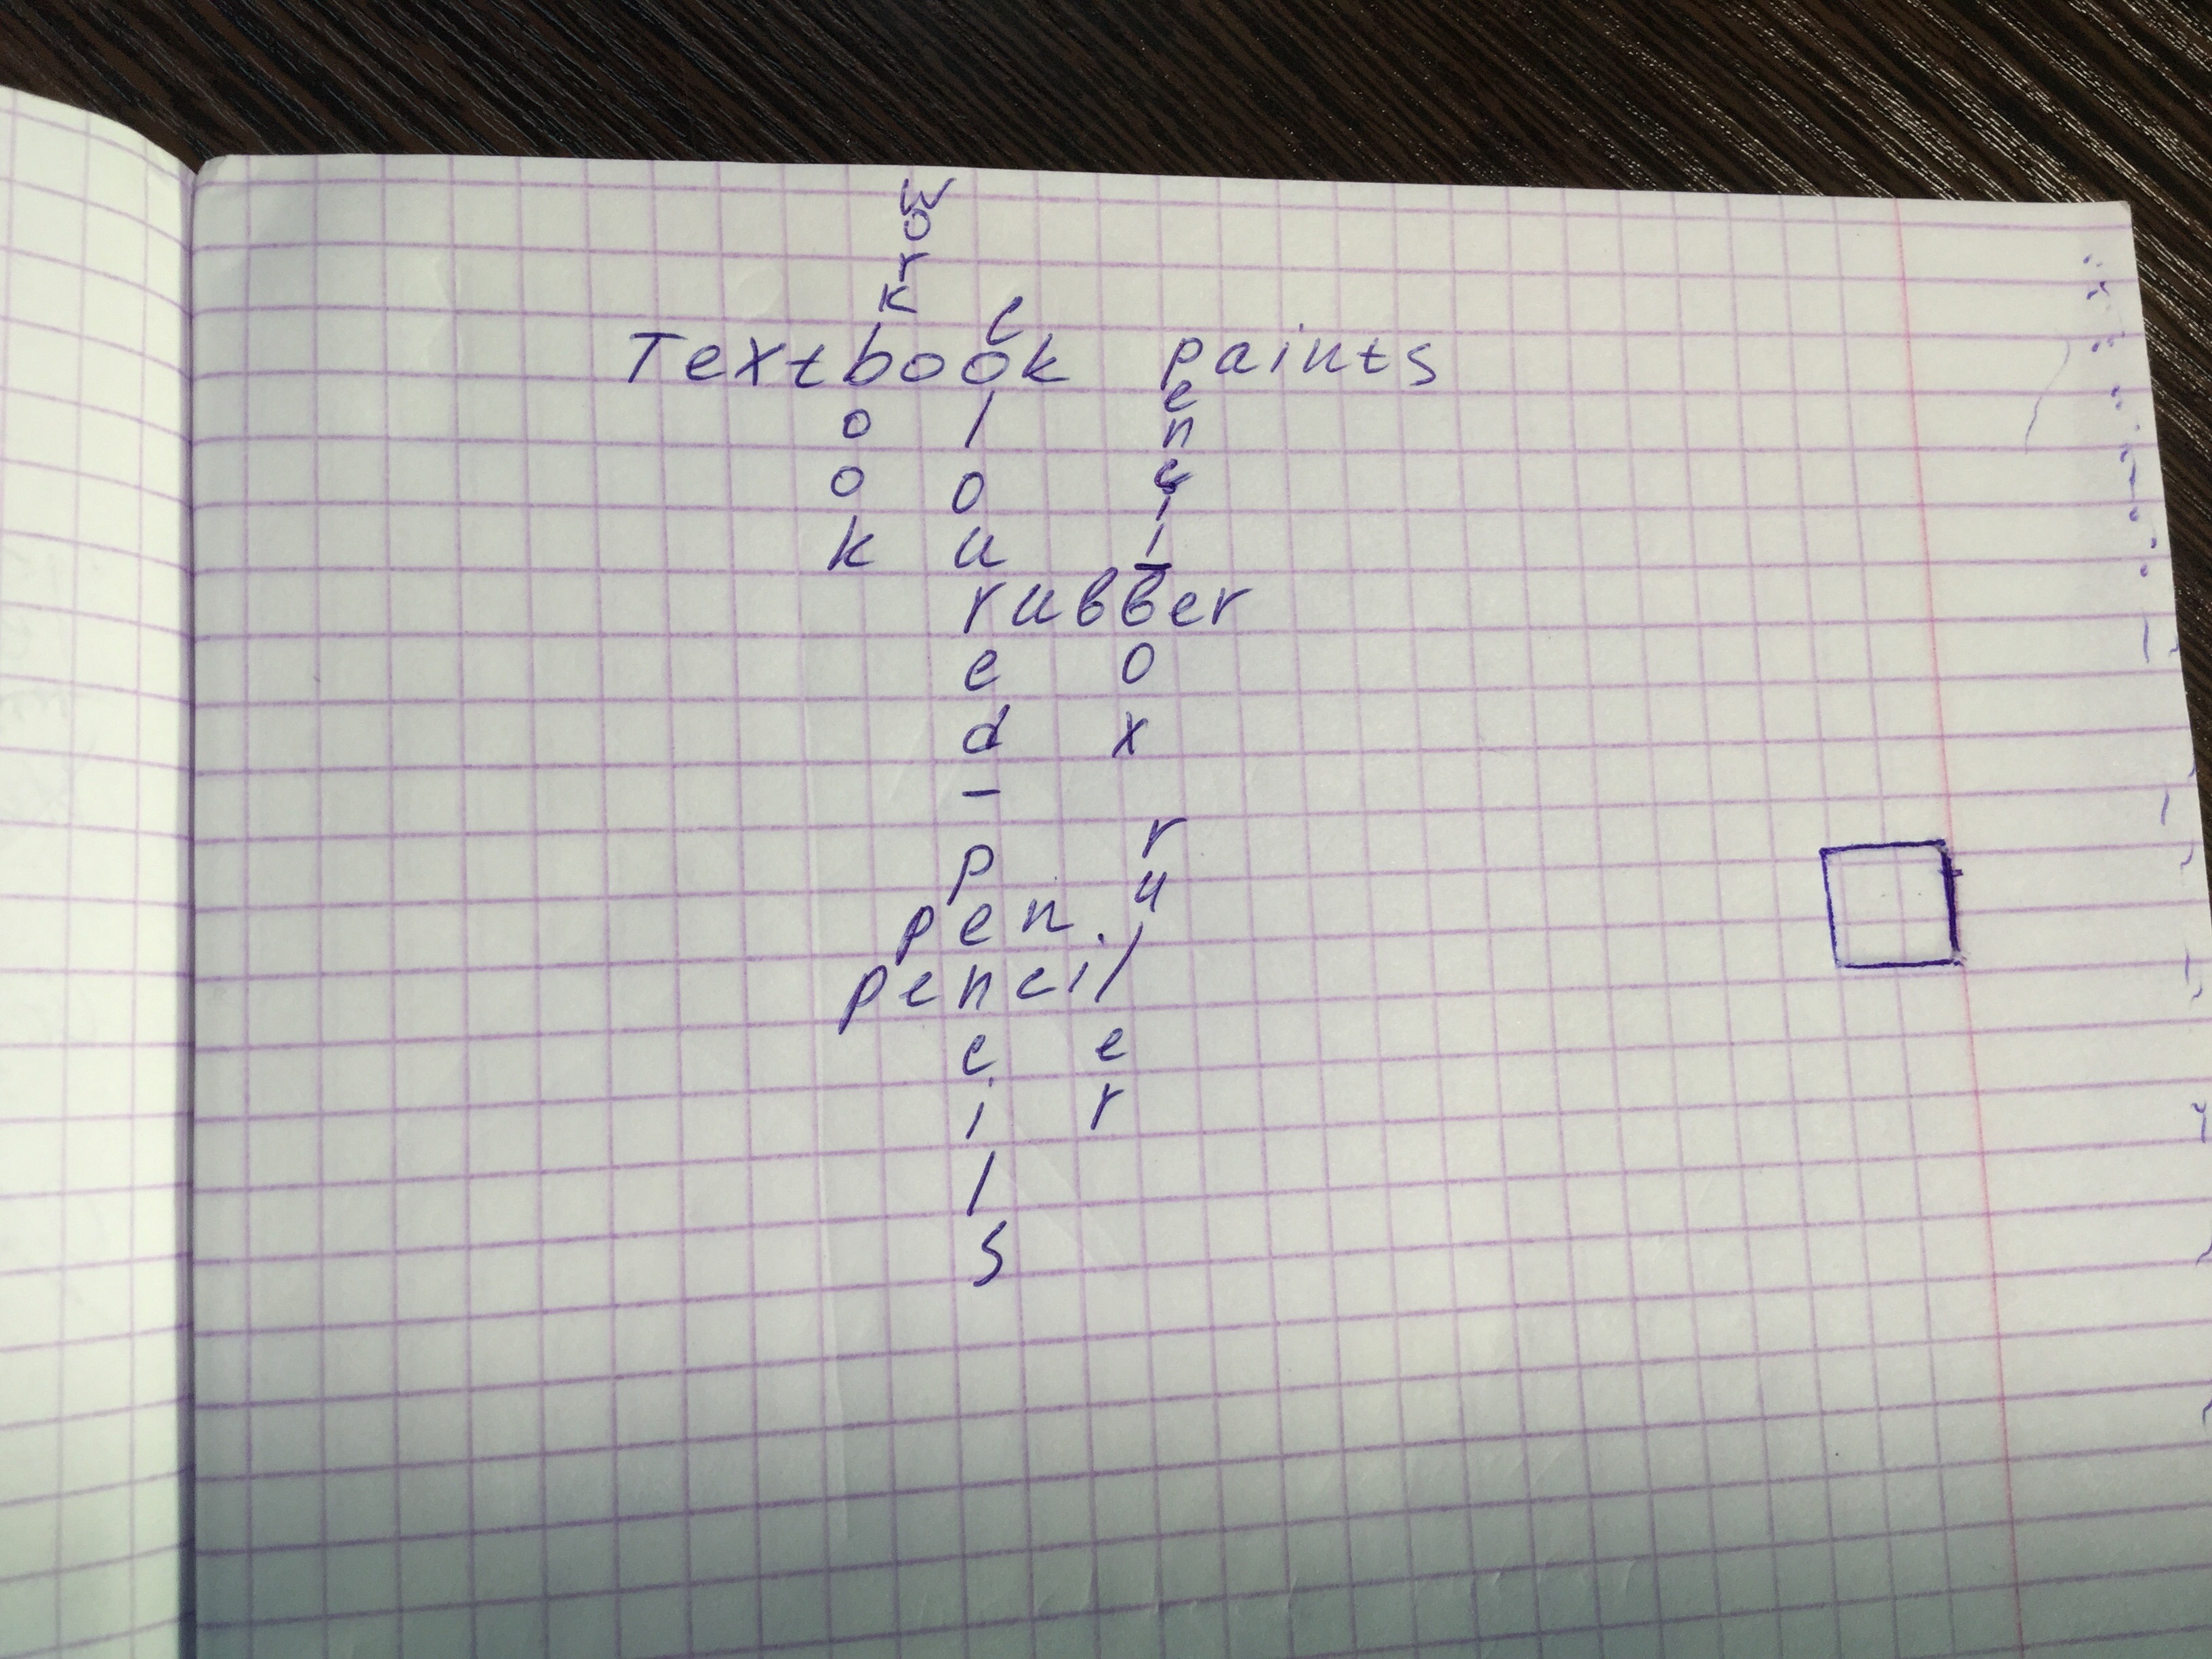 w
o
r
k
c
Textbook paints
e
o l n
c
o o i
k u l
-
rubber
e o
d x
-
r
p u
pen.
pencil
c e
i r
l
s